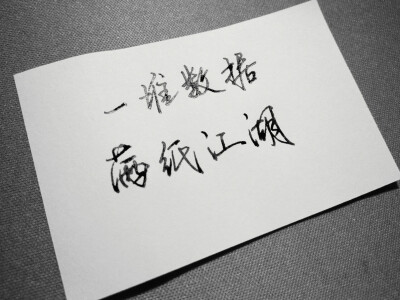 一堆数据
满纸江湖